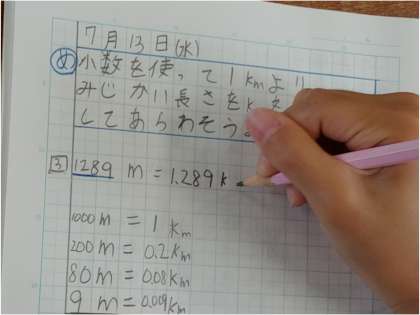 7月13日(水)
め 小数を使って1kmより
みじかい長さをkmを
してあらわそう。
3 1289 m = 1.289 k
1000 m = 1 km
200 m = 0.2 km
80 m = 0.08 km
9 m = 0.009 km